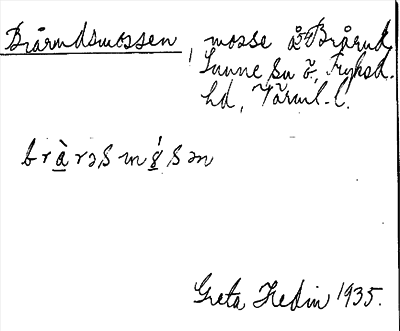 Brårudsmossen, mosse å Brårud,
Sunne sn o., Fryksd.
hd, Värml. l.
bràrəsmǿsən
Greta Hedin 1935.